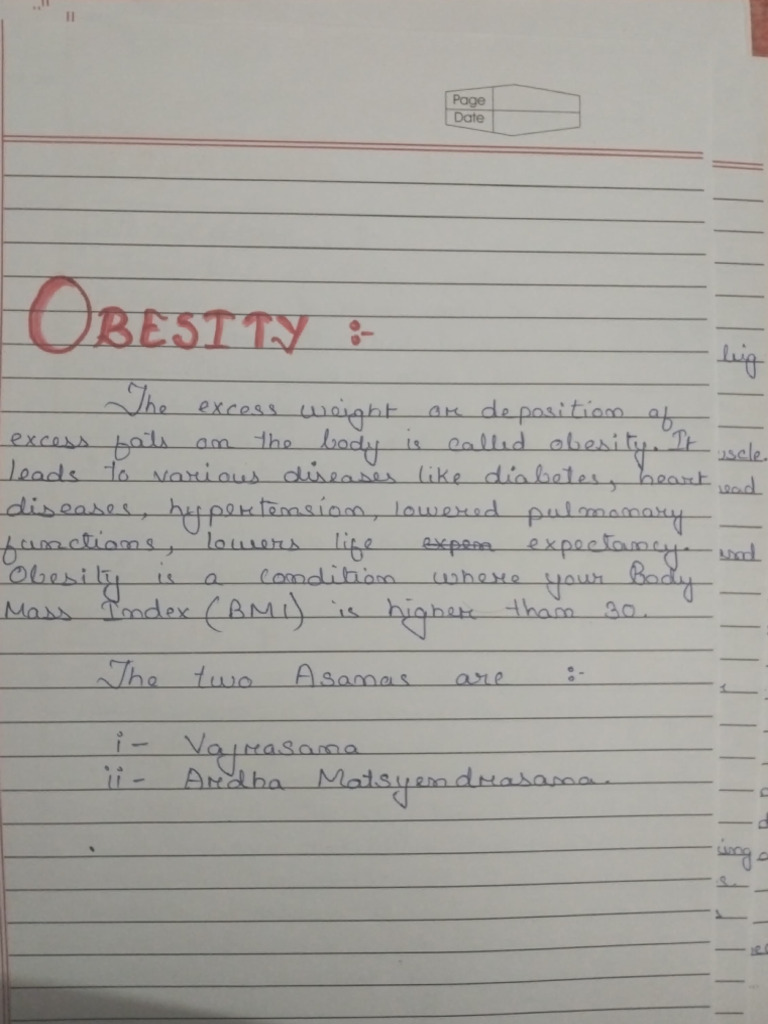 Page
Date
OBESITY :-
The excess weight or deposition of
excess fats on the body is called obesity. It
leads to various diseases like diabetes, heart
diseases, hypertension, lowered pulmonary
functions, lowers life expectancy.
Obesity is a condition where your Body
Mass Index (BMI) is higher than 30.
The two Asanas are :-
i- Vajrasana
ii- Ardha Matsyendrasana.